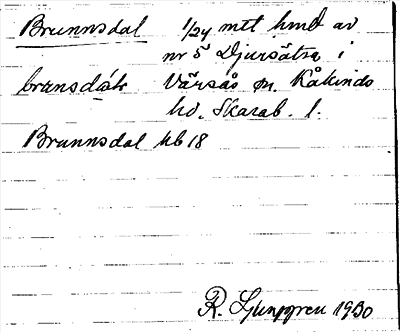 Brunnsdal 1/24 mtl hmd av
nr 5 Djursätra i
brunsdáls Värsås sn. Kåkinds
hd. Skarab. l.
Brunnsdal hb 18
R. Ljunggren 1930